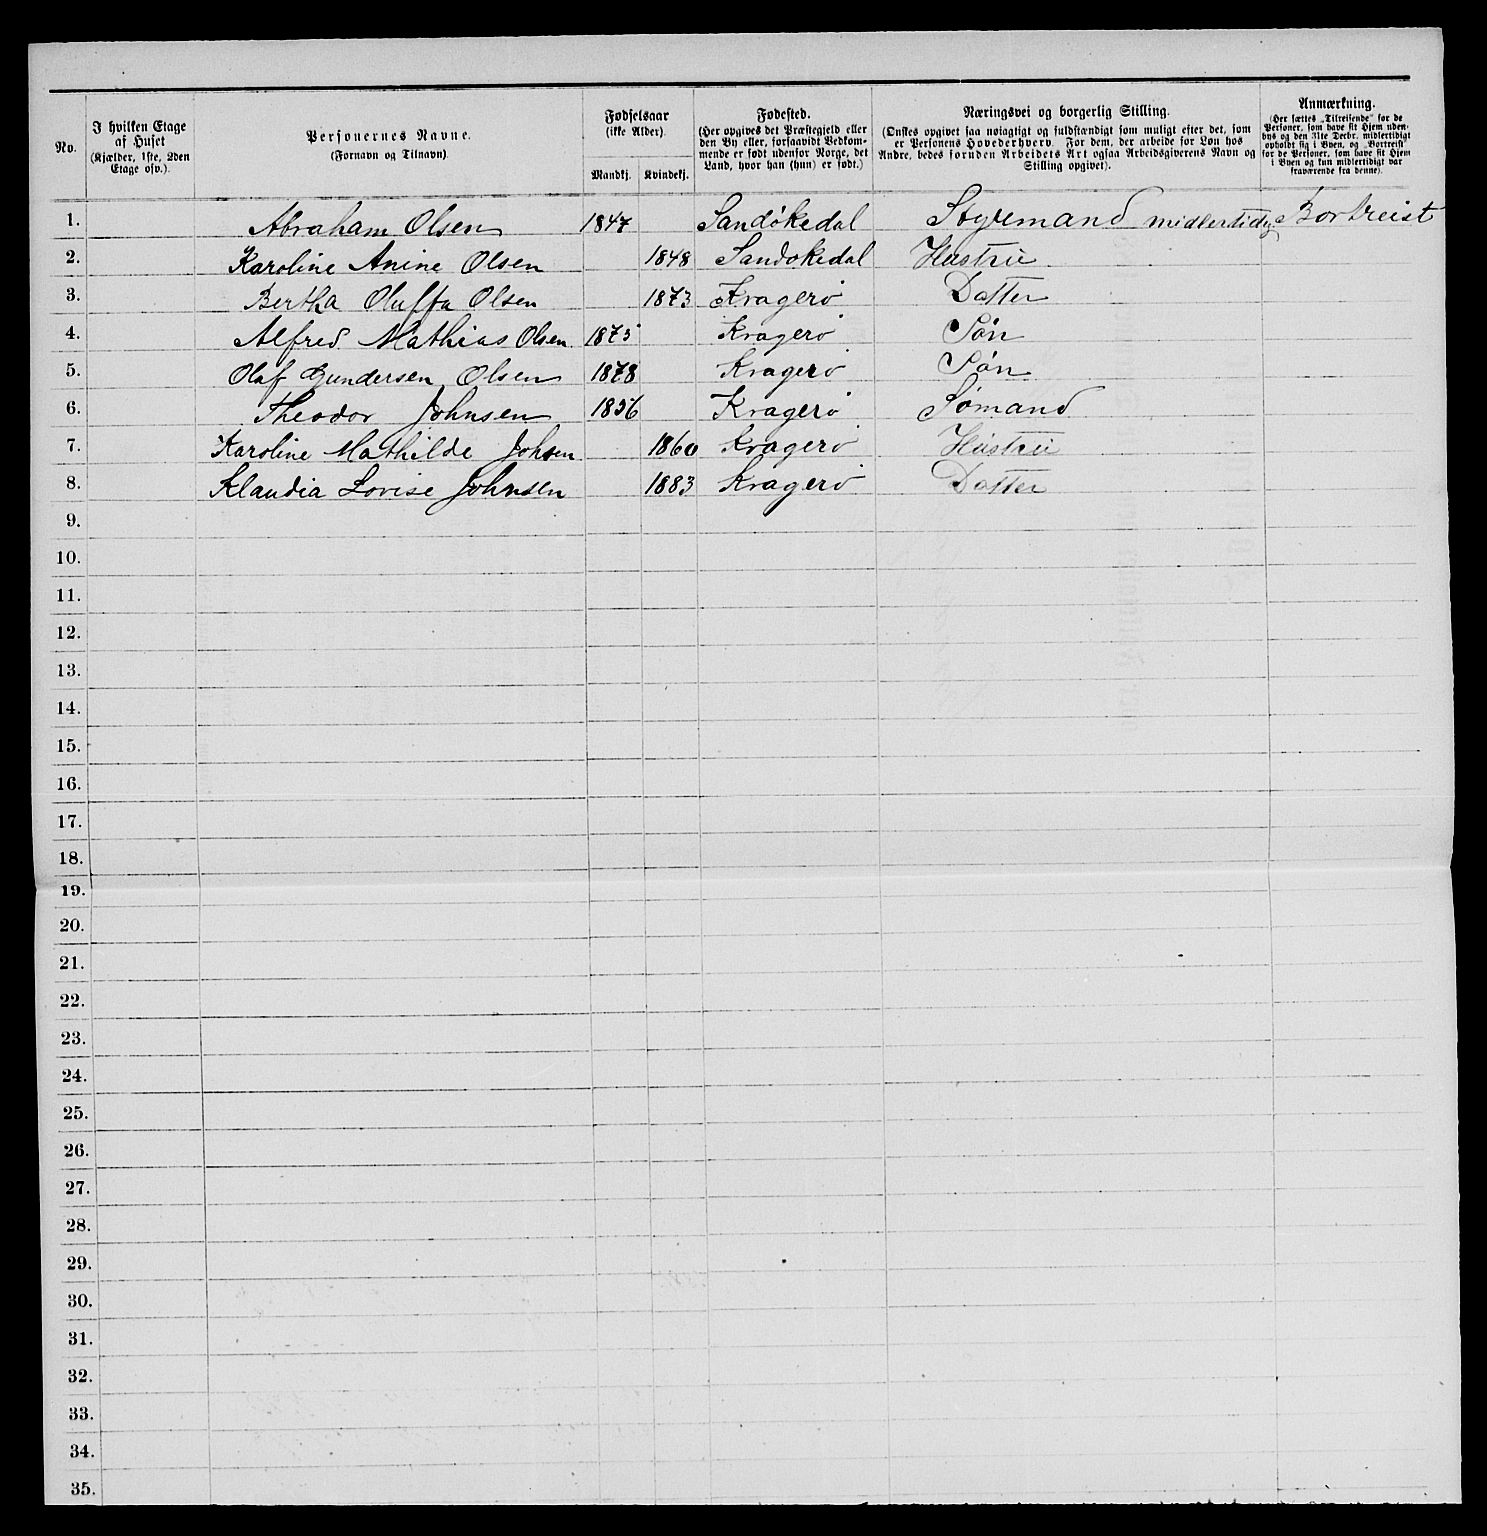 No.
I hvilken Etage af Huset (Kjælder, 1ste, 2den Etage osv.).
Personernes Navne. (Fornavn og Tilnavn).
Fødselsaar (ikke Alder). Mandkj. Kvindekj.
Fødested. (Her opgives det Præstegjeld eller den By eller, forsaavidt Vedkommende er født udenfor Norge, det Land, hvor han (hun) er født.)
Næringsvei og borgerlig Stilling. (Ønskes opgivet saa nøiagtigt og fuldstændigt som muligt efter det, som er Personens Hovederhverv. For dem, der arbeide for Løn hos Andre, bedes foruden Arbeidets Art ogsaa Arbeidsgiverens Navn og Stilling opgivet).
Anmærkning. (Her sættes „Tilreisende“ for de Personer, som have sit Hjem udenbys og den 31te Decbr. midlertidigt opholdt sig i Byen, og „Bortreist“ for de Personer, som have sit Hjem i Byen og kun midlertidigt var fraværende fra denne).
1. Abraham Olsen 1847 Sandökedal Styremand midlertidig Bortreist
2. Karoline Anine Olsen 1848 Sandokedal Hustru
3. Bertha Oluffa Olsen 1873 Kragerö Datter
4. Alfred Mathias Olsen 1875 Kragerö Sön
5. Olaf Gundersen Olsen 1878 Kragerö Sön
6. Theodor Johnsen 1856 Kragerö Sömand
7. Karoline Mathilde Johsen 1860 Kragerö Hustru
8. Klaudia Lovise Johnsen 1883 Kragerö Datter
9.
10.
11.
12.
13.
14.
15.
16.
17.
18.
19.
20.
21.
22.
23.
24.
25.
26.
27.
28.
29.
30.
31.
32.
33.
34.
35.